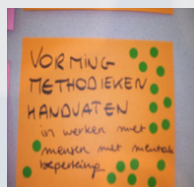 VORMING
METHODIEKEN
HANDVATEN
in werken met
mensen met mentale
beperking